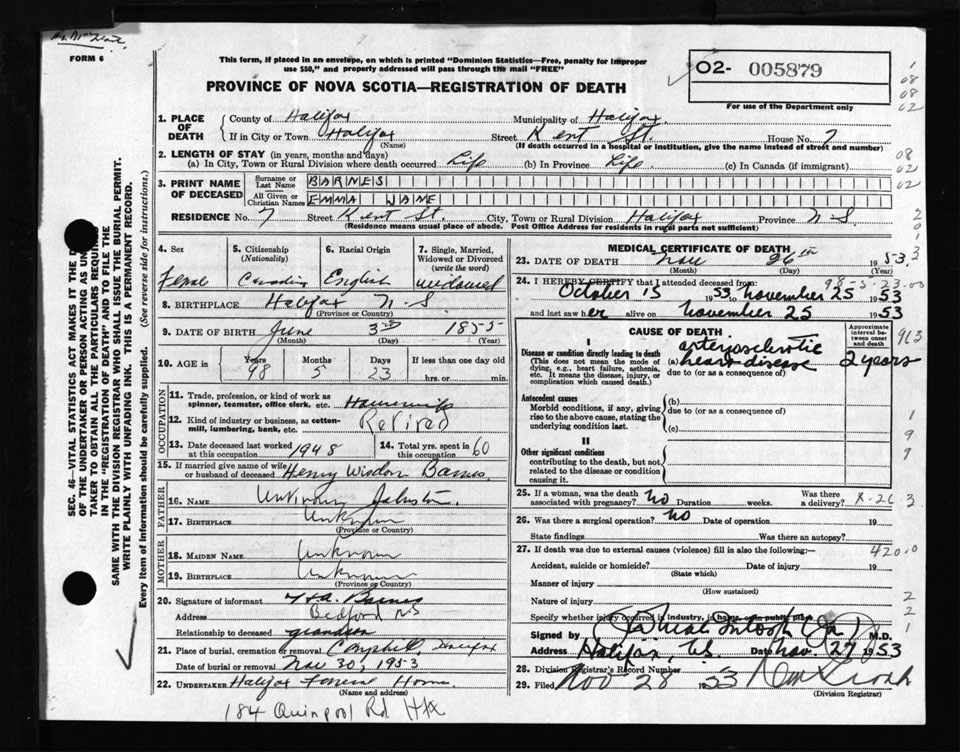 FORM 6
This form, if placed in an envelope, on which is printed "Dominion Statistics—Free, penalty for improper
use $50," and properly addressed will pass through the mail "FREE"
PROVINCE OF NOVA SCOTIA—REGISTRATION OF DEATH
02- 005879
For use of the Department only
1. PLACE OF DEATH
County of Halifax Municipality of Halifax
If in City or Town Halifax Street Kent St. House No. 7
(Name) (If death occurred in a hospital or institution, give the name instead of street and number)
2. LENGTH OF STAY (in years, months and days)
(a) In City, Town or Rural Division where death occurred Life (b) In Province Life (c) In Canada (if immigrant)
3. PRINT NAME OF DECEASED
Surname or Last Name BARNES
All Given or Christian Names EMMA JANE
RESIDENCE No. 7 Street Kent St. City, Town or Rural Division Halifax Province N S
(Residence means usual place of abode. Post Office Address for residents in rural parts not sufficient)
SEC. 46—VITAL STATISTICS ACT MAKES IT THE D
OF THE UNDERTAKER OR PERSON ACTING AS UN
TAKER TO OBTAIN ALL THE PARTICULARS REQUIRED
IN THE "REGISTRATION OF DEATH" AND TO FILE THE
SAME WITH THE DIVISION REGISTRAR WHO SHALL ISSUE THE BURIAL PERMIT.
WRITE PLAINLY WITH UNFADING INK. THIS IS A PERMANENT RECORD.
Every item of information should be carefully supplied. (See reverse side for instructions.)
4. Sex 5. Citizenship (Nationality) 6. Racial Origin 7. Single, Married, Widowed or Divorced (write the word)
Female Canadian English widowed
8. BIRTHPLACE Halifax N-S
(Province or Country)
9. DATE OF BIRTH June 3rd 1855
(Month) (Day) (Year)
10. AGE in Years Months Days If less than one day old
98 5 23 hrs. or min.
OCCUPATION
11. Trade, profession, or kind of work as spinner, teamster, office clerk, etc. Housewife
12. Kind of industry or business, as cotton-mill, lumbering, bank, etc. Retired
13. Date deceased last worked at this occupation 1948 14. Total yrs. spent in this occupation 60
15. If married give name of wife or husband of deceased Henry Wisdon Barnes
FATHER
16. NAME Unknown Johnston.
17. BIRTHPLACE Unknown
(Province or Country)
MOTHER
18. MAIDEN NAME Unknown
19. BIRTHPLACE Unknown
(Province or Country)
20. Signature of informant Barnes
Address Bedford NS
Relationship to deceased grandson
21. Place of burial, cremation or removal Camphill, Halifax
Date of burial or removal Nov 30, 1953
22. UNDERTAKER Halifax Funeral Home
(Name and address)
184 Quinpool Rd Hfx
MEDICAL CERTIFICATE OF DEATH
23. DATE OF DEATH Nov 26th 1953
(Month) (Day) (Year)
98-5-23.00
24. I HEREBY CERTIFY that I attended deceased from:
October 15 1953 to November 25 1953
and last saw her alive on November 25 1953
CAUSE OF DEATH
Approximate interval between onset and death
I
Disease or condition directly leading to death
(This does not mean the mode of dying, e.g., heart failure, asthenia, etc. It means the disease, injury, or complication which caused death.)
(a) arteriosclerotic heart disease 2 years
due to (or as a consequence of)
Antecedent causes
Morbid conditions, if any, giving rise to the above cause, stating the underlying condition last.
(b)
due to (or as a consequence of)
(c)
II
Other significant conditions
contributing to the death, but not related to the disease or condition causing it.
25. If a woman, was the death associated with pregnancy? no Duration weeks. Was there a delivery? X-26
26. Was there a surgical operation? no Date of operation 19
State findings Was there an autopsy?
27. If death was due to external causes (violence) fill in also the following:— 420.0
Accident, suicide or homicide? Date of injury 19
(State which)
Manner of injury
(How sustained)
Nature of injury
Specify whether injury occurred in industry, in home, or in public place
Signed by M.D.
Address Halifax, N.S. Date Nov. 27 1953
28. Division Registrar's Record Number
29. Filed Nov 28 1953
(Division Registrar)